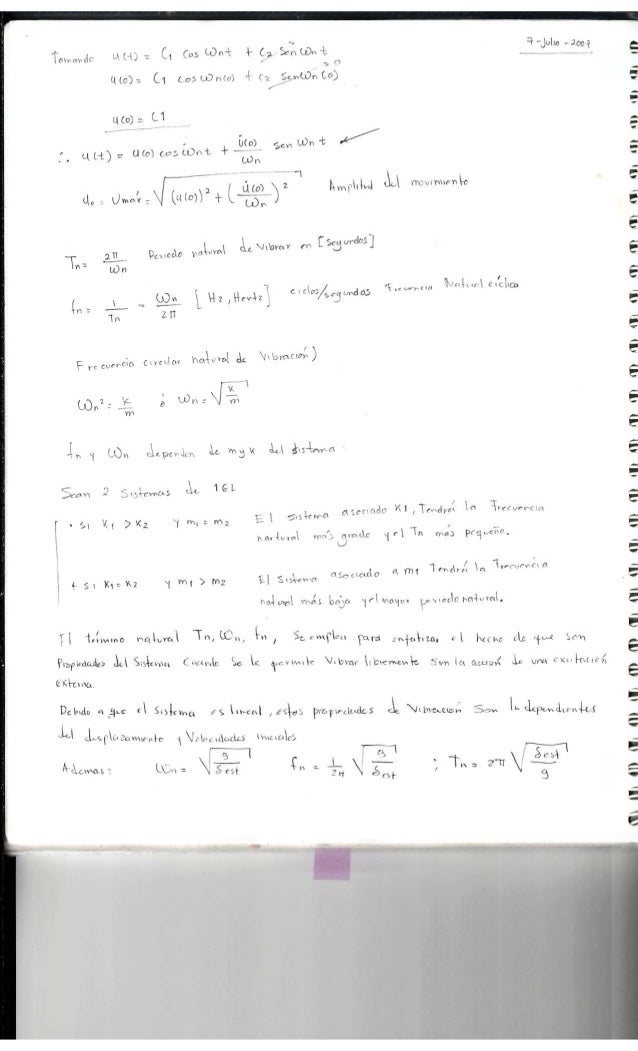 7-Julio-2007
Tomando u(t) = C1 Cos Wnt + C2 Sen Wnt
u(0) = C1 cos Wn(0) + C2 Sen Wn(0) 0
u(0) = C1
∴ u(t) = u(0) cos Wnt + u̇(0)/Wn sen Wnt
uo = Umáx = √((u(0))² + (u̇(0)/Wn)²) Amplitud del movimiento
Tn = 2π/Wn Periodo natural de vibrar en [segundos]
fn = 1/Tn = Wn/2π [Hz, Hertz] ciclos/segundos Frecuencia Natural cíclica
Frecuencia circular natural de Vibración)
Wn² = k/m ó Wn = √(k/m)
fn y Wn dependen de m y k del sistema.
Sean 2 Sistemas de 1GL
• Si K1 > K2 y m1 = m2 El sistema asociado K1, Tendrá la Frecuencia
nartural más grade y el Tn más pequeño.
+ Si K1 = K2 y m1 > m2 El Sistema asociado a m1 Tendrá la Frecuencia
natural más baja y el mayor periodo natural.
El término natural Tn, Wn, fn, Se emplea para enfatizar el hecho de que son
Propiedades del Sistema Cuando Se le permite Vibrar libremente Sin la acción de una exitación
externa.
Debido a que el Sistema es lineal, estas propiedades de Vibración Son Independientes
del desplazamiento y Velocidades iniciales
Ademas: Wn = √(g/δest) fn = 1/2π √(g/δest) ; Tn = 2π √(δest/g)